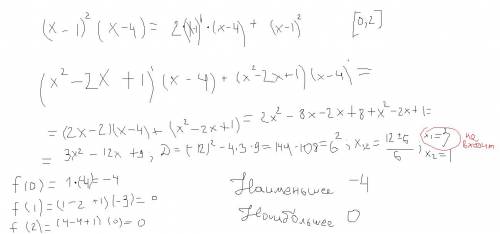 (x-1)² (x-4) = 2·(x-1)¹·(x-4) + (x-1)² [0,2]
(x²-2x+1)' (x-4) + (x²-2x+1)(x-4)' =
= (2x-2)(x-4) + (x²-2x+1) = 2x²-8x-2x+8+x²-2x+1=
= 3x²-12x+9, D=(-12)²-4·3·9=144-108=6², x₁,₂=(12±6)/6; x₁=3, x₂=1 не входит
f(0) = 1·(-4)=-4
f(1)=(1-2+1)(-3)=0
f(2)=(4-4+1)(0)=0
Наименьшее -4
Наибольшее 0